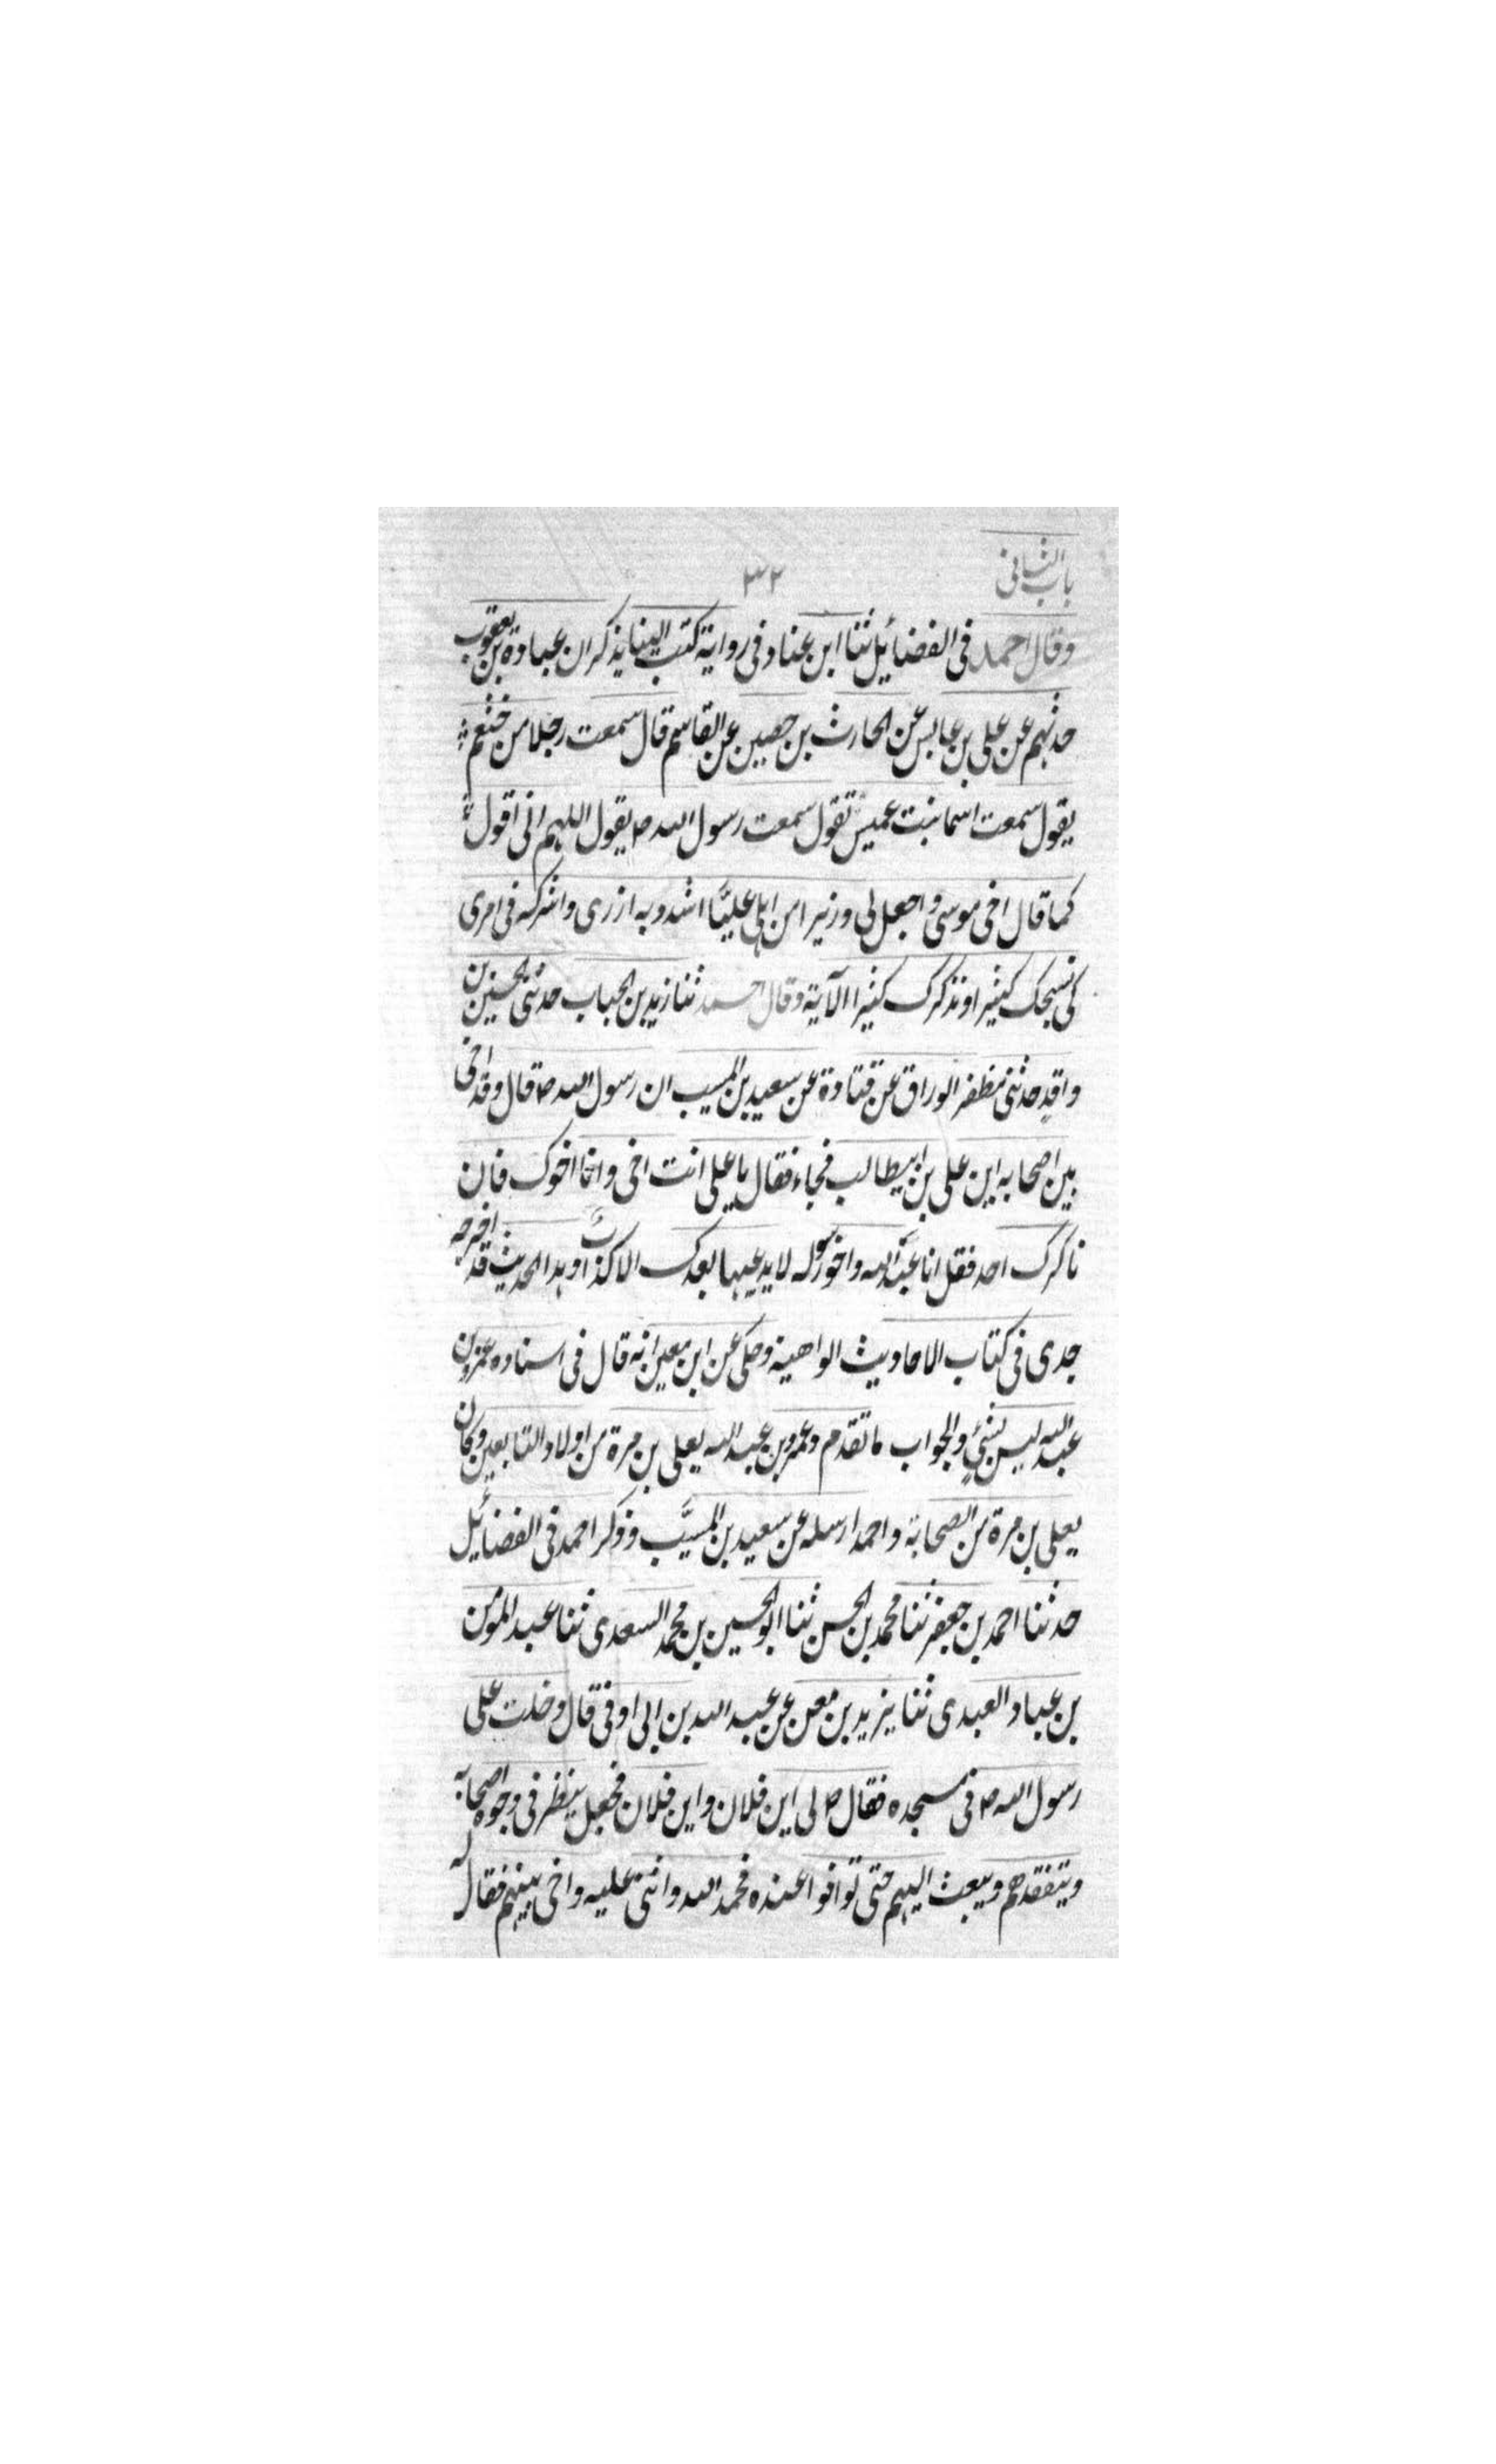 باب الثانی
۳۲
وقال احمد فی الفضائیل ثنا ابن عنا وفی روایة کتب الینا یذکر ان عبادة بن یعقوب
حدثهم عن علی بن عابس عن الحارث بن حصین عن القاسم قال سمعت رجلا من خثعم
یقول سمعت اسما بنت عمیس تقول سمعت رسول الله ص یقول اللهم انی اقول
کما قال اخی موسی واجعل لی وزیرا من اهلی علیّا اشدد به ازری واشرکه فی امری
کی نسبحک کثیرا ونذکرک کثیرا الآیة وقال احمد ثنا زید بن الحباب حدثنی الحسین بن
واقد حدثنی مظفر الوراق عن قتادة عن سعید بن المسیب ان رسول الله ص قال وقد اخی
بین اصحابه این علی بن ابیطالب فجاء فقال یا علی انت اخی وانا اخوک فان
ناکرک احد فقل انا عبد الله واخو رسوله لا یدعیها بعدک الا کذاب وهذا الحدیث قد اخرجه
جدی فی کتاب الاحادیث الواهیة وحکی عن ابن معین انه قال فی اسناده عمرو بن
عبد الله لیس بشیٍٔ والجواب ما تقدم وعمرو بن عبد الله یعلی بن مرة من اولاد التابعین وکان
یعلی بن مرة من الصحابة واحمد ارسله عن سعید بن المسیَّب وذکر احمد فی الفضائیل
حدثنا احمد بن جعفر ثنا محمد بن الحسن ثنا ابو الحسین بن محمد السعدی ثنا عبد المؤمن
بن عباد العبدی ثنا یزید بن معن عن عبد الله بن ابی اوفی قال دخلت علی
رسول الله ص فی مسجده فقال ص لی این فلان واین فلان فجعل ینظر فی وجوه اصحابه
ویتفقدهم ویبعث الیهم حتی توافوا عنده فحمد الله واثنی علیه واخی بینهم فقال له